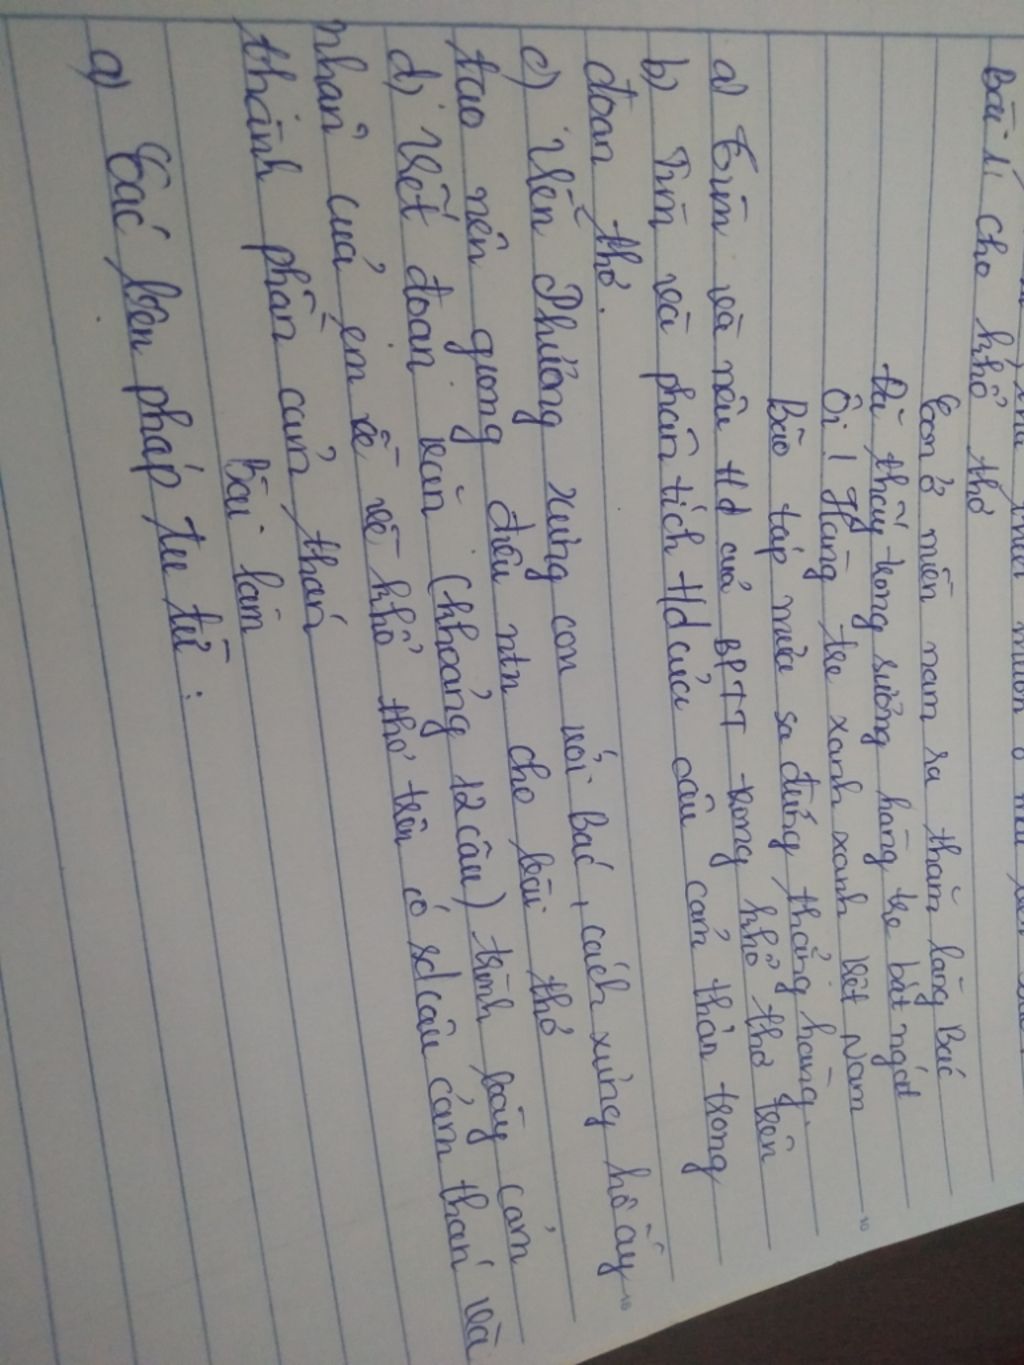 Bài 1: cho khổ thơ
Con ở miền nam ra thăm lăng Bác
Đã thấy trong sương hàng tre bát ngát
Ôi! Hàng tre xanh xanh Việt Nam
Bão táp mưa sa đứng thẳng hàng.
a) Tìm và nêu td của BPTT trong khổ thơ trên
b) Tìm và phân tích td của câu cảm thán trong
đoạn thơ.
c) Viễn Phương xưng con với Bác, cách xưng hô ấy
tạo nên giọng điệu ntn cho bài thơ
d) Viết đoạn văn (khoảng 12 câu) trình bày cảm
nhận của em về về khổ thơ trên có sd câu cảm thán và
thành phần cảm thán
Bài làm
a) Các biện pháp tu từ: